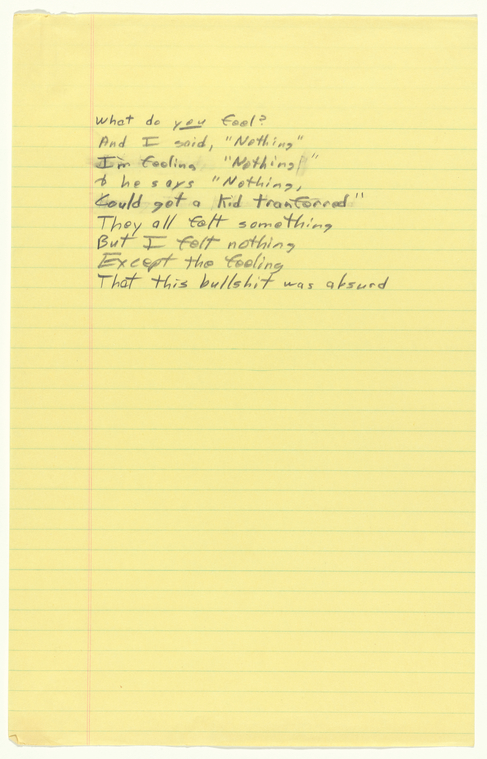 What do you feel?
And I said, "Nothing"
I'm feeling "Nothing!"
& he says "Nothing,
Could get a kid tranferred"
They all felt something
But I felt nothing
Except the feeling
That this bullshit was absurd